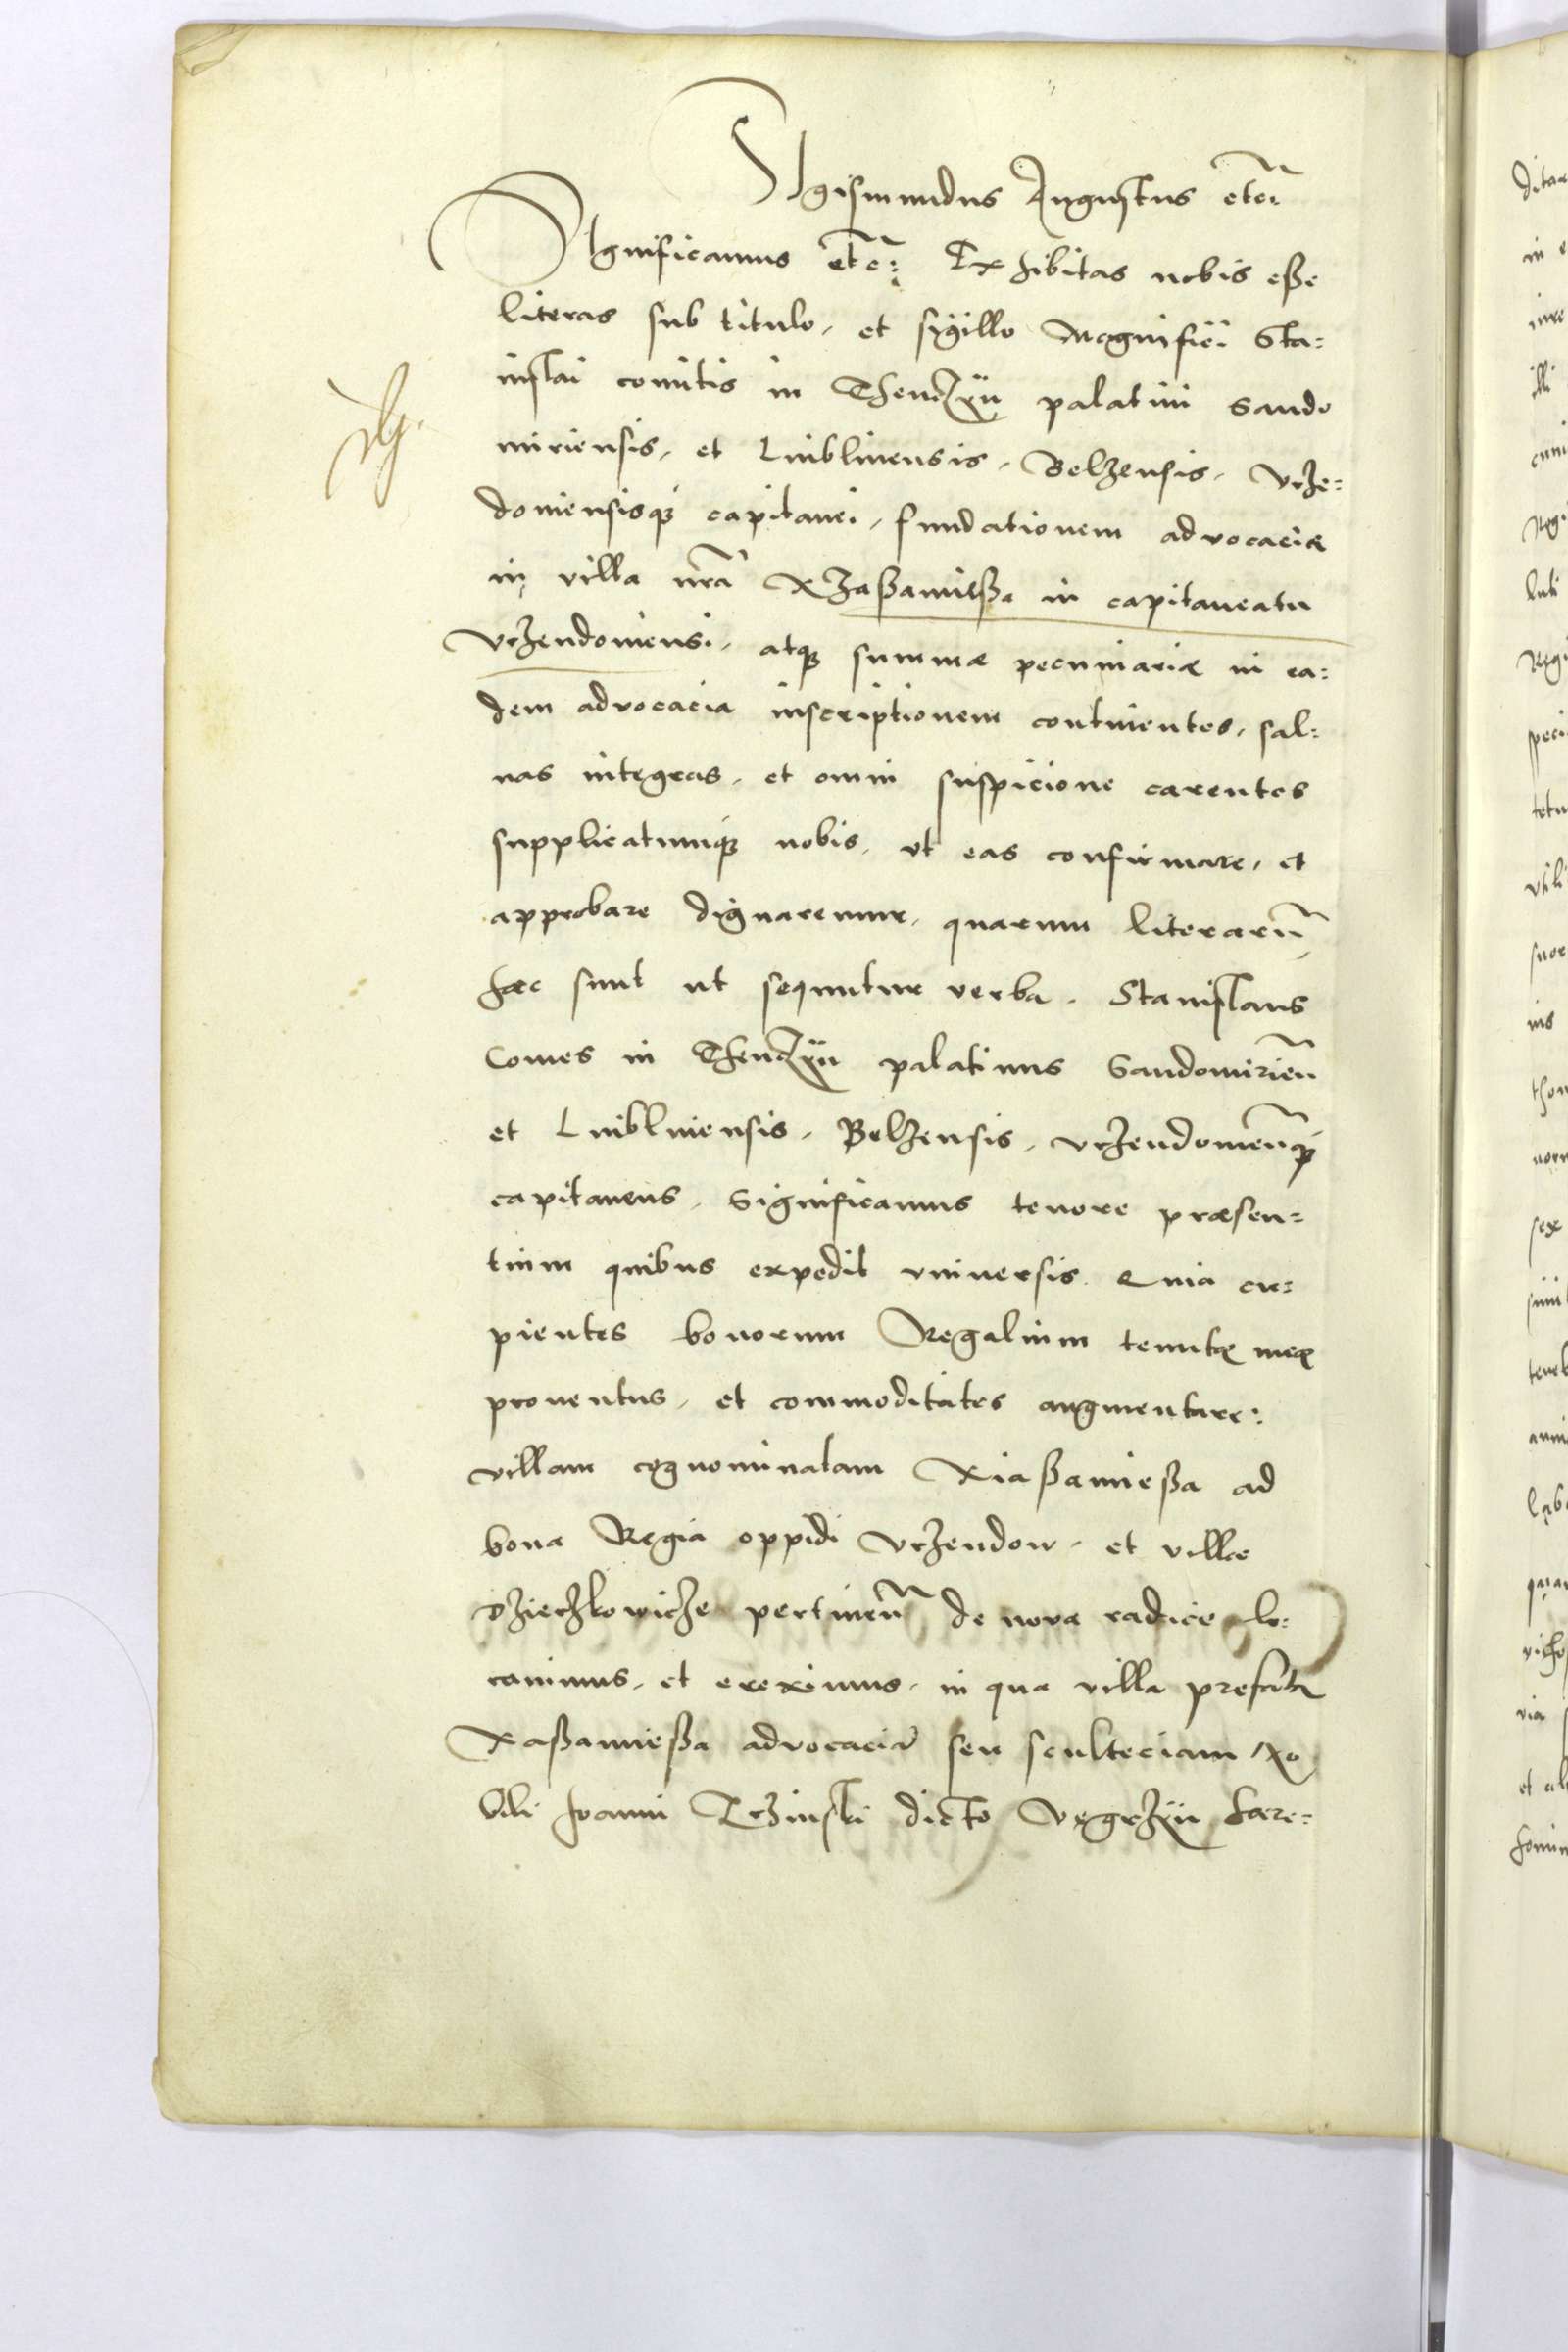 Sigismundus Augustus etc:
Significamus etc: Exhibitas nobis esse
literas sub titulo, et sigillo Magnifici Sta=
nislai comitis in Thenczin palatini Sando
miriensis, et Lublinensis, Belzensis, Vrze=
doviensisque capitanei, fundationem advocaciæ
in villa nrã Xzassamiessa in capitaneatu
Vrzendoviensi, atque summæ pecuniariæ in ea=
dem advocacia inscriptionem continentes, sal=
vas integras, et omni suspicione carentes
supplicatumque nobis, ut eas confirmare, et
approbare dignaremur, quarum literarũ
hæc sunt ut sequuntur verba. Stanislaus
Comes in Thenczin palatinus Sandomirieñ
et Lublinensis, Belzensis, Vrzendovieñque
capitaneus, Significamus tenore præsen=
tium quibus expedit universis. Quia cu=
pientes bonorum Regalium tenutæ meæ
proventus, et commoditates augmentare:
villam cognominatam Xiassamiessa ad
bona Regia oppidi Vrzendow, et villæ
Dzierzkowicze pertineñ de nova radice lo=
cavimus, et ereximus, in qua villa prefata
Xassamiessa advocaciã seu scultetiam No
bili Joanni Trzinski dicto Vegrzin hære=